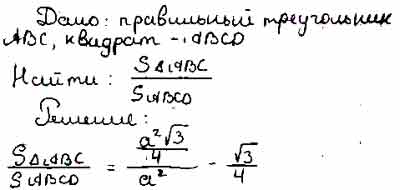 Дано: правильный треугольник
ABC, квадрат - ABCD
Найти: S△ABC / SABCD
Решение:
S△ABC / SABCD = (a²√3 / 4) / a² - √3 / 4